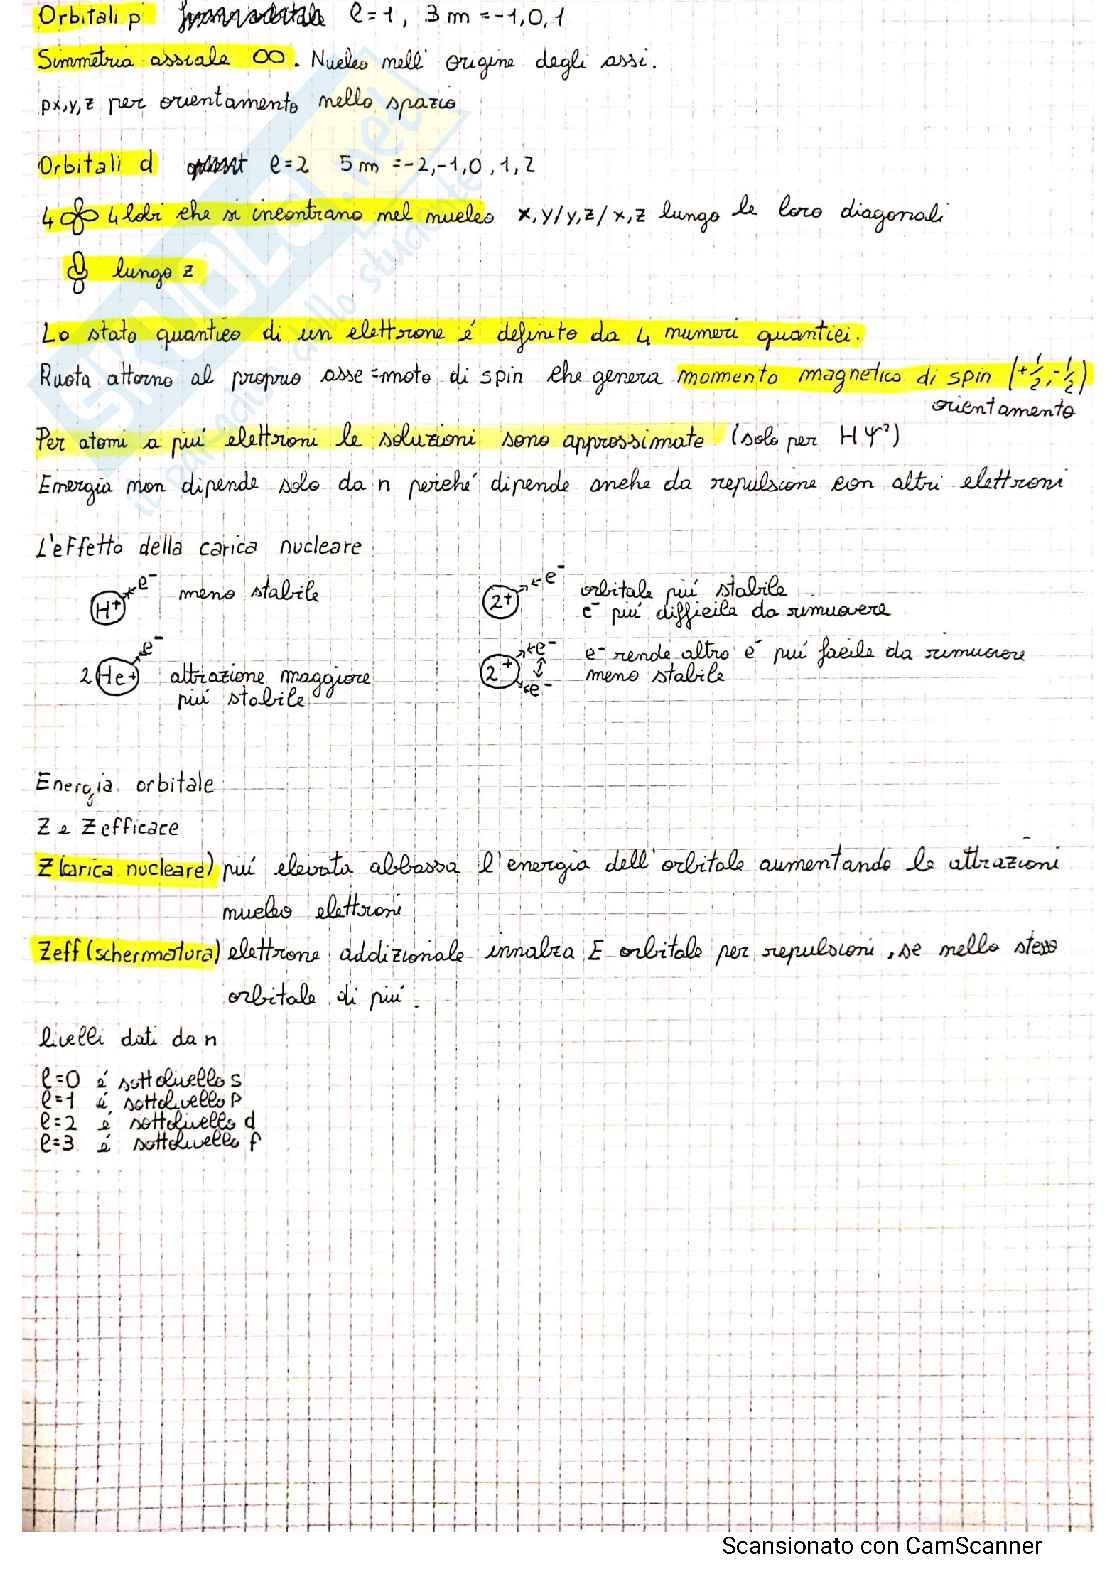 Orbitali p l=1, 3 m = -1,0,1
Simmetria assiale ∞. Nucleo nell' origine degli assi.
px,y,z per orientamento nello spazio
Orbitali d l=2 5 m = -2,-1,0,1,2
4 4 lobi che si incontrano nel nucleo x,y/y,z/x,z lungo le loro diagonali
lungo z
Lo stato quantico di un elettrone é definito da 4 numeri quantici.
Ruota attorno al proprio asse = moto di spin che genera momento magnetico di spin (+1/2,-1/2)
orientamento
Per atomi a piú elettroni le soluzioni sono approssimate (solo per H ψ²)
Energia non dipende solo da n perché dipende anche da repulsione con altri elettroni
L'effetto della carica nucleare
H+ e- meno stabile
2+ e- orbitale piú stabile
e- piú difficile da rimuovere
2 He+ e- attrazione maggiore
piú stabile
2+ e- e- e- rende altro e- piú facile da rimuovere
meno stabile
Energia orbitale
Z e Zefficace
Z (carica nucleare) piú elevata abbassa l'energia dell'orbitale aumentando le attrazioni
nucleo elettroni
Zeff (schermatura) elettrone addizionale innalza E orbitale per repulsioni, se nello stesso
orbitale di piú.
livelli dati da n
l=0 é sottolivello s
l=1 é sottolivello p
l=2 é sottolivello d
l=3 é sottolivello f
Scansionato con CamScanner